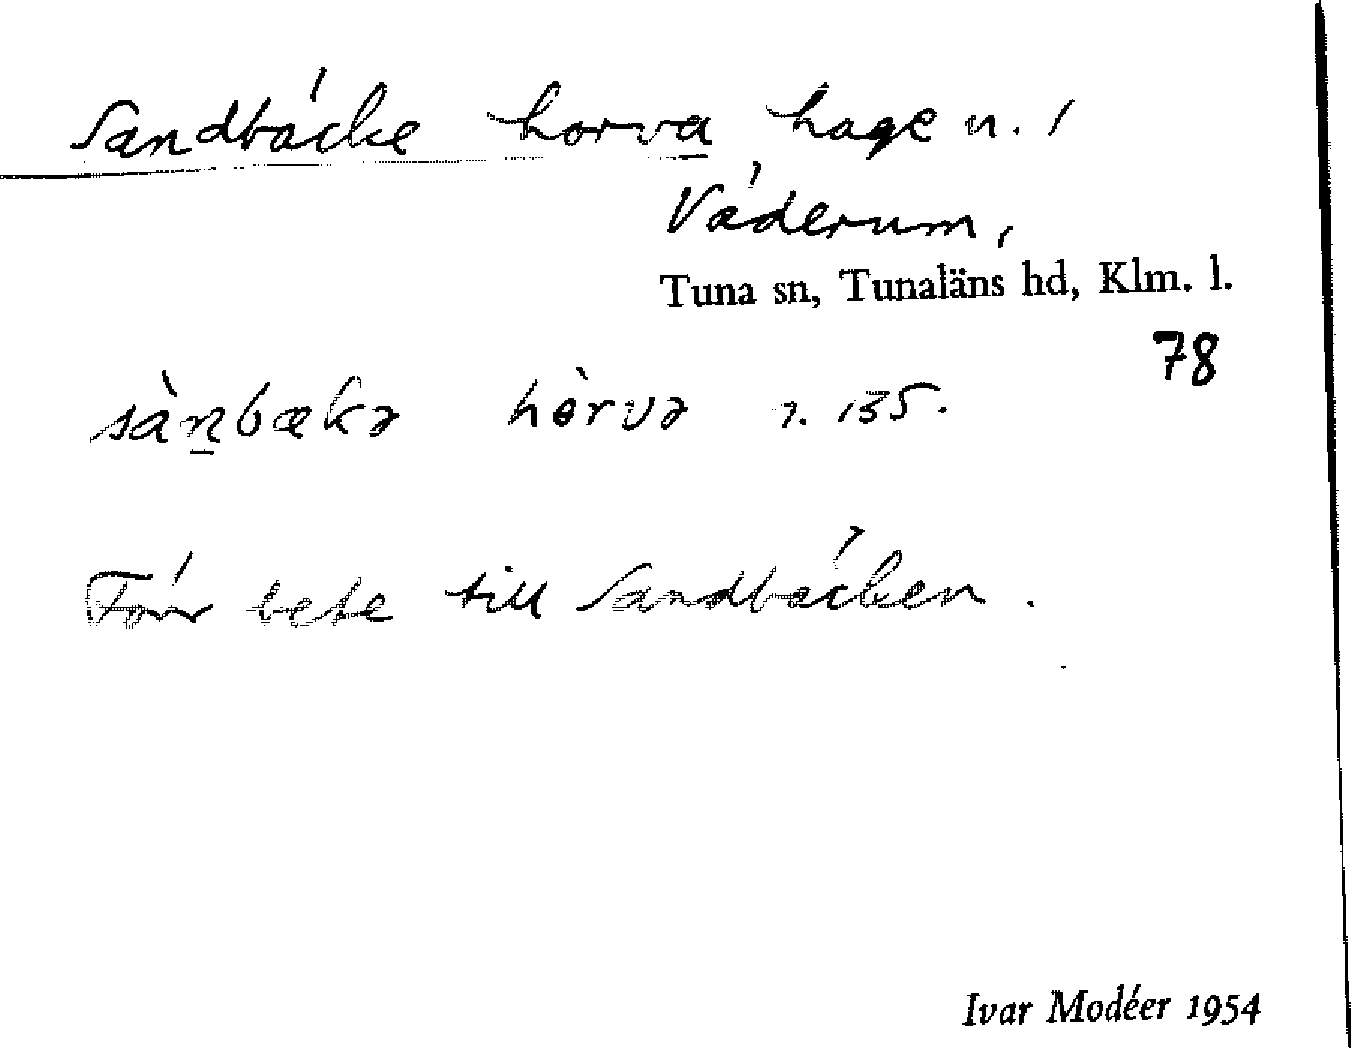 Sandbäcke horva hage n. 1
Väderum,
Tuna sn, Tunaläns hd, Klm. l.
78
sàn̠bækə hòrvə r. 135.
Förr bete till Sandbäcken.
Ivar Modéer 1954